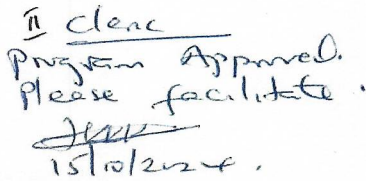 II Clerk
Program Approved.
Please facilitate.
15/10/2024.